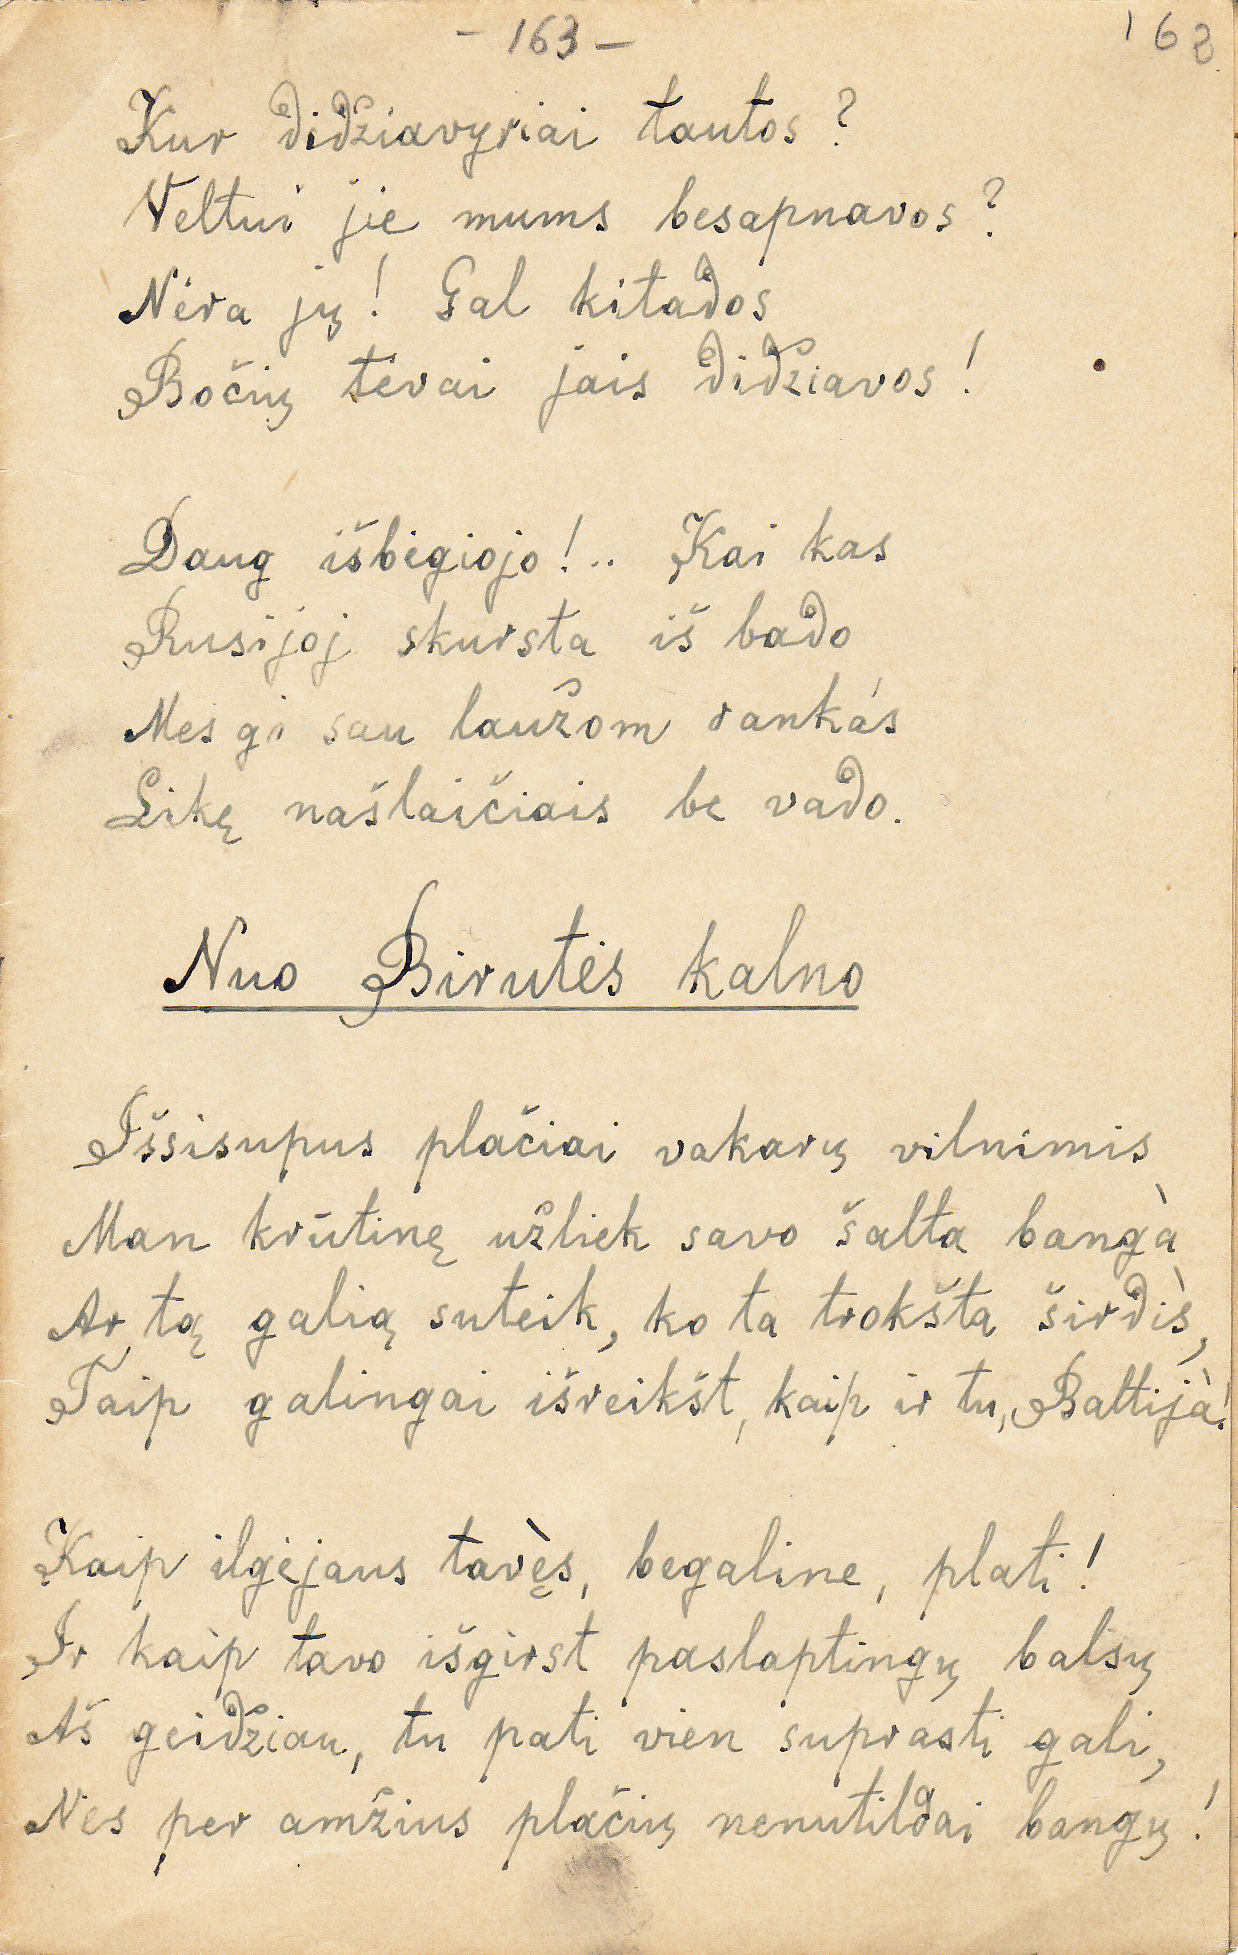 - 163 -
168
Kur didžiavyriai tautos?
Veltui jie mums besapnavos?
Nėra jų! Gal kitados
Bočių tėvai jais didžiavos!
Daug išbėgiojo!.. Kai kas
Rusijoj skursta iš bado
Mes gi sau laužom rankás
Likę našlaičiais be vado.
Nuo Birutės kalno
Išsisupus plačiai vakarų vilnimis
Man krūtinę užliek savo šalta bangà
Ar tą galią suteik, ko ta trokšta širdìs,
Taip galingai išreikšt, kaip ir tu, Baltijà!
Kaip ilgėjaus tavę̀s, begaline, plati!
Ir kaip tavo išgirst paslaptingų balsų
Aš geidžiau, tu pati vien suprasti gali,
Nes per amžius plačių nenutildai bangų!